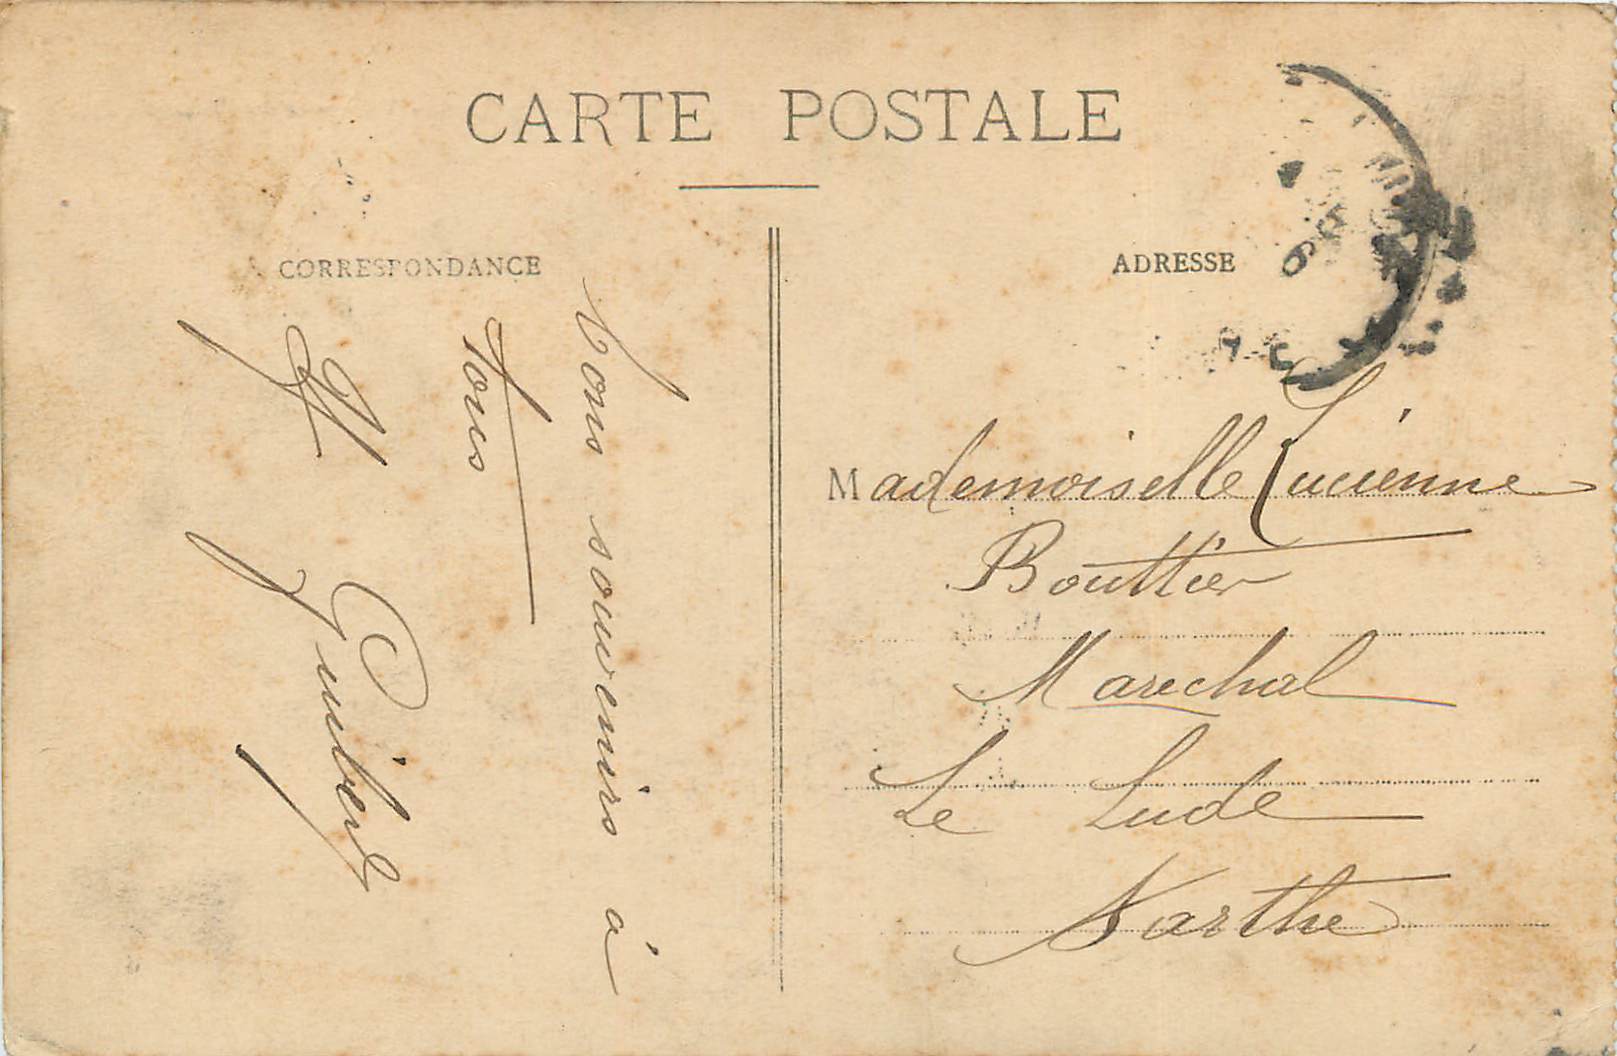 CARTE POSTALE
CORRESPONDANCE
ADRESSE
Bons souvenirs à
tous
H Guibert
Mademoiselle Lucienne
Bouttier
Marechal
Le Lude
Sarthe